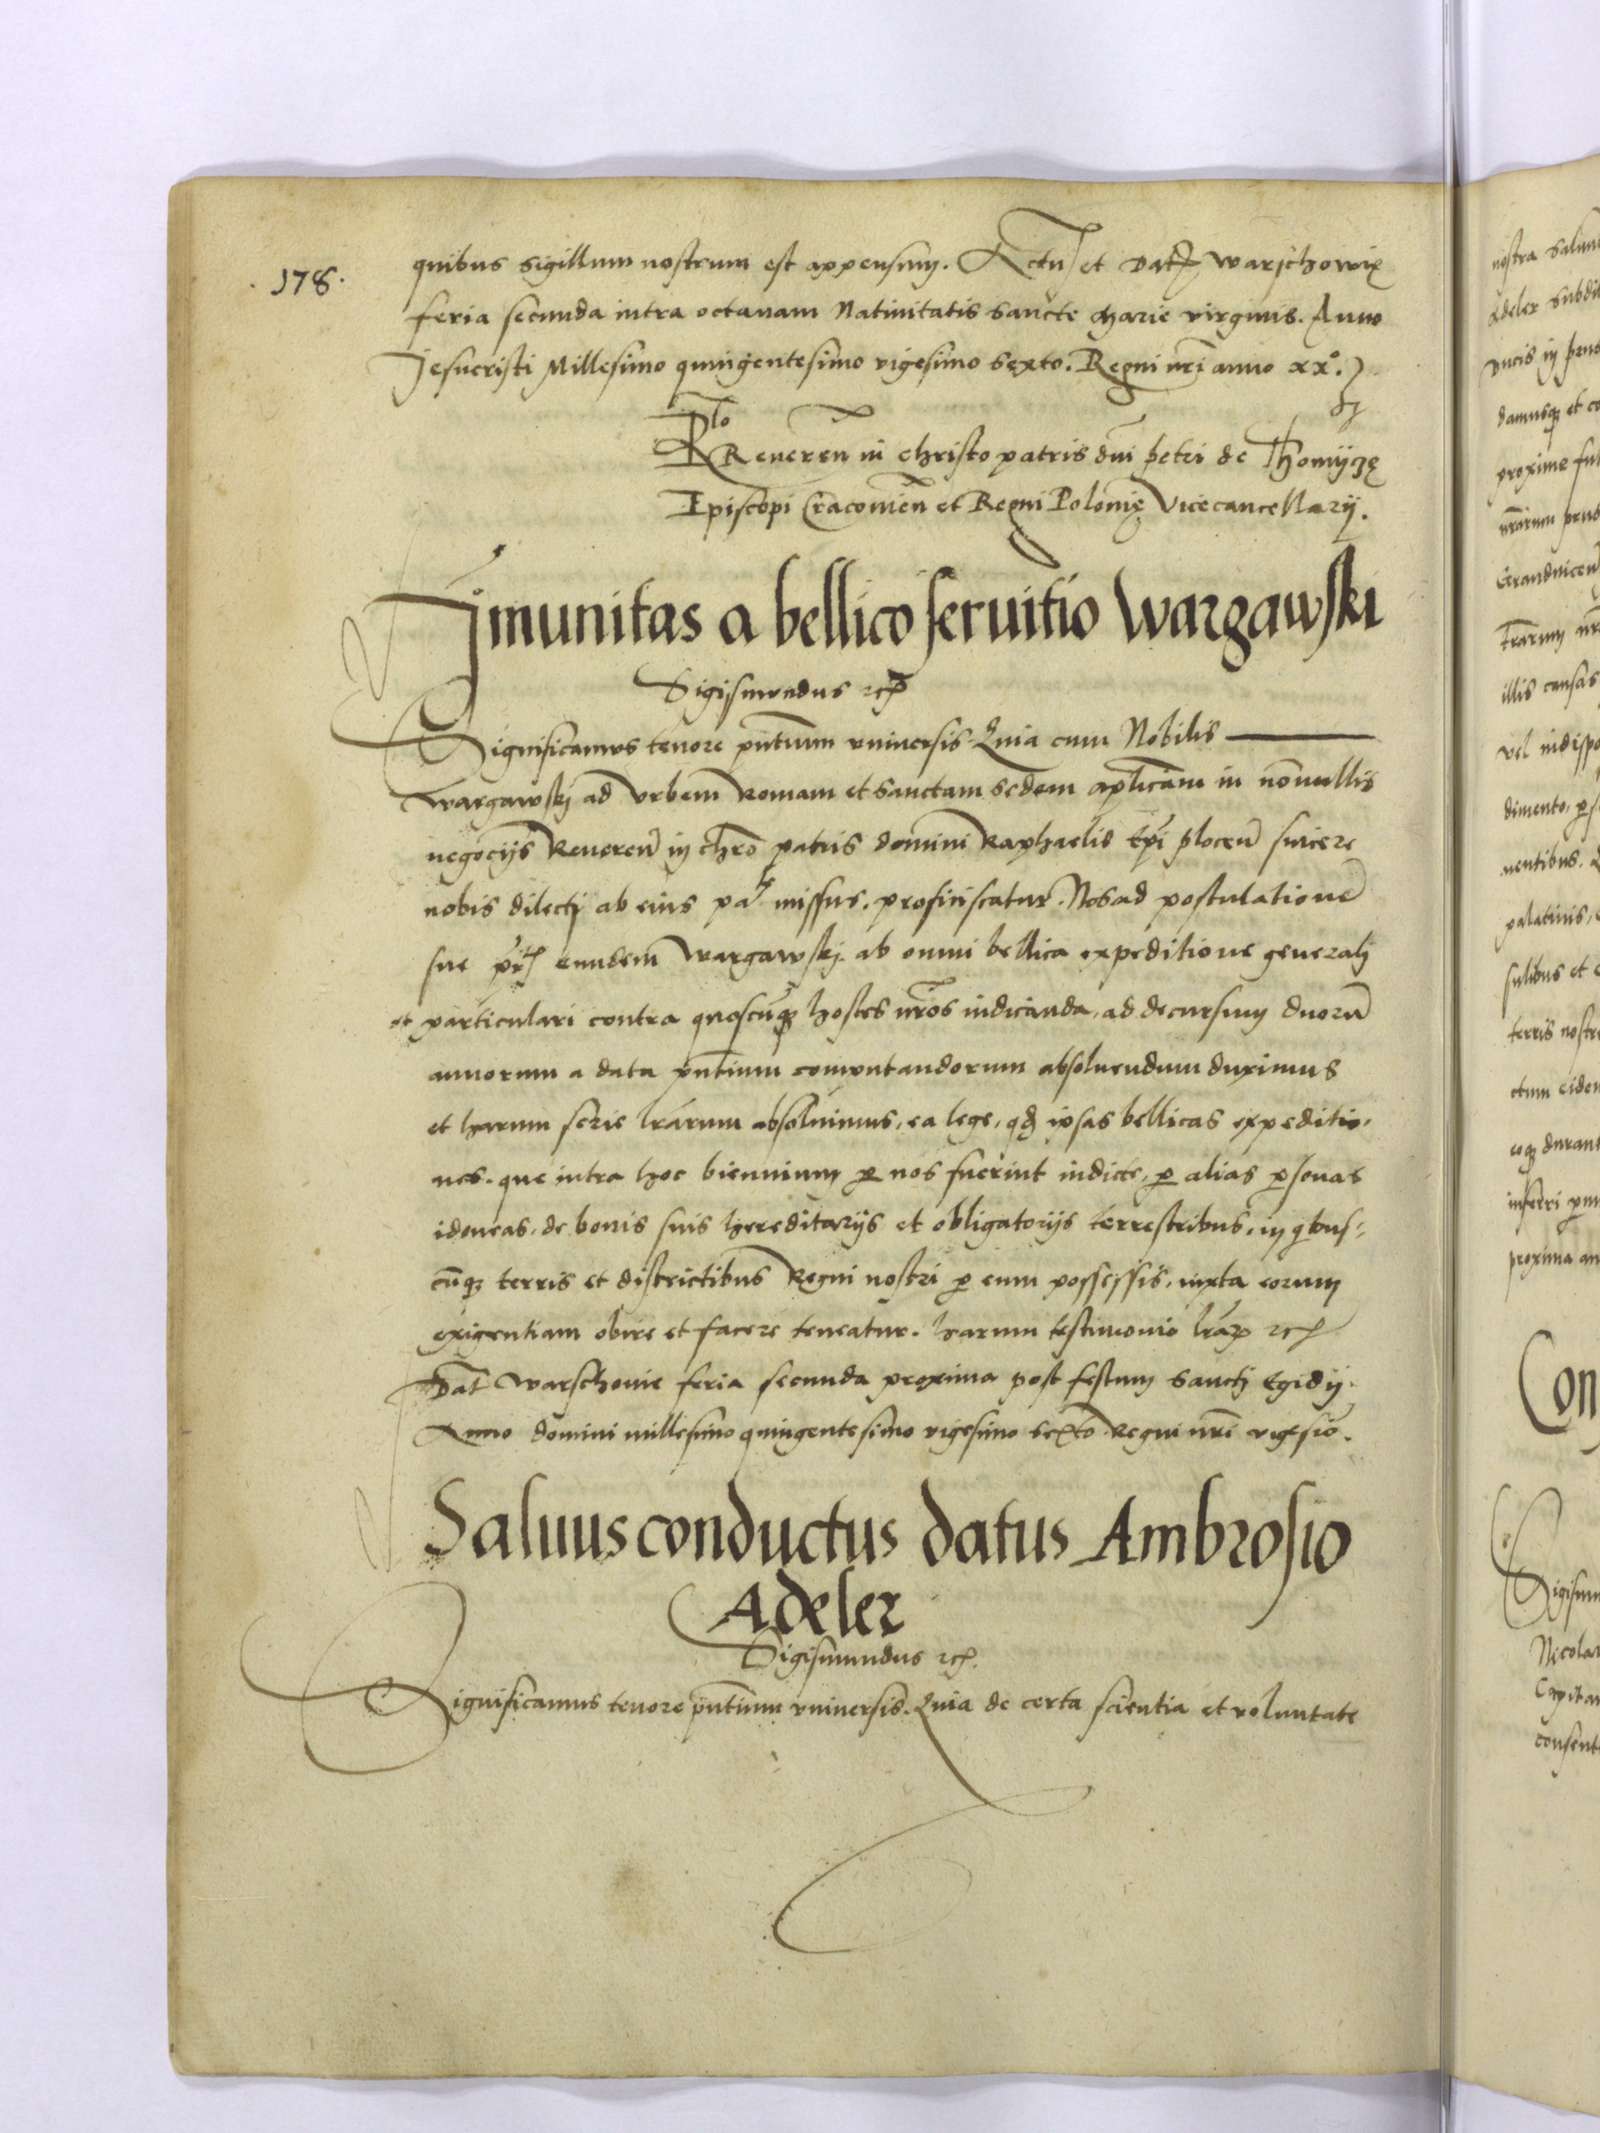 .178.
quibus sigillum nostrum est appensum. Actu et Dat Warschowie
feria secunda intra octauam Natiuitatis Sancte Marie virginis. Anno
Jesucristi Millesimo quingentesimo vigesimo sexto. Regni nri anno xx°.
Rlo
Reueren in christo patris dni Petri de Thomijczę
Episcopi Cracouien et Regni Polonię Vicecancellarij.
Imunitas a bellico seruitio Wargawski
Sigismundus rc
Significamus tenore pntium vniuersis. Quia cum Nobilis
Wargawskj ad Vrbem Romam et Sanctam Sedem aplicam in nonullis
negocijs Reueren in chro patris domini Raphaelis Epi plocen sincere
nobis dilectj ab eius pa missus. proficiscatur. Nos ad postulatione
sue eundem Wargawskj. ab omni bellica expeditione generalj
et particulari contra quoscuq hostes nros indicenda, ad decursum duoru
annorum a data pntium computandorum absoluendum duximus
et harum serie lrarum absoluimus, ea lege, qd ipsas bellicas expeditio,
nes. que intra hoc biennium p nos fuerint indicte, p alias psonas
idoneas. de bonis suis hereditarijs et obligatorijs terrestribus, in qbus,
cuq terris et districtibus Regni nostri p eum possessis, iuxta eorum
exigentiam obire et facere teneatur. harum testimonio lrar rc
Dat Warschouie feria secunda proxima post festum Sanctj Egidij.
Anno domini millesimo quingentesimo vigesimo sexto Regni nri vigesio.
Saluus conductus datus Ambrosio
Adeler
Sigismundus rc.
Significamus tenore pntium vniuersis. Quia de certa scientia et voluntate
nostra
Adeler
damusq et
proxime
illis causas
vel
dimento,
uentibus.
palatinis,
terris
ctum
proxima
Con
Capitan